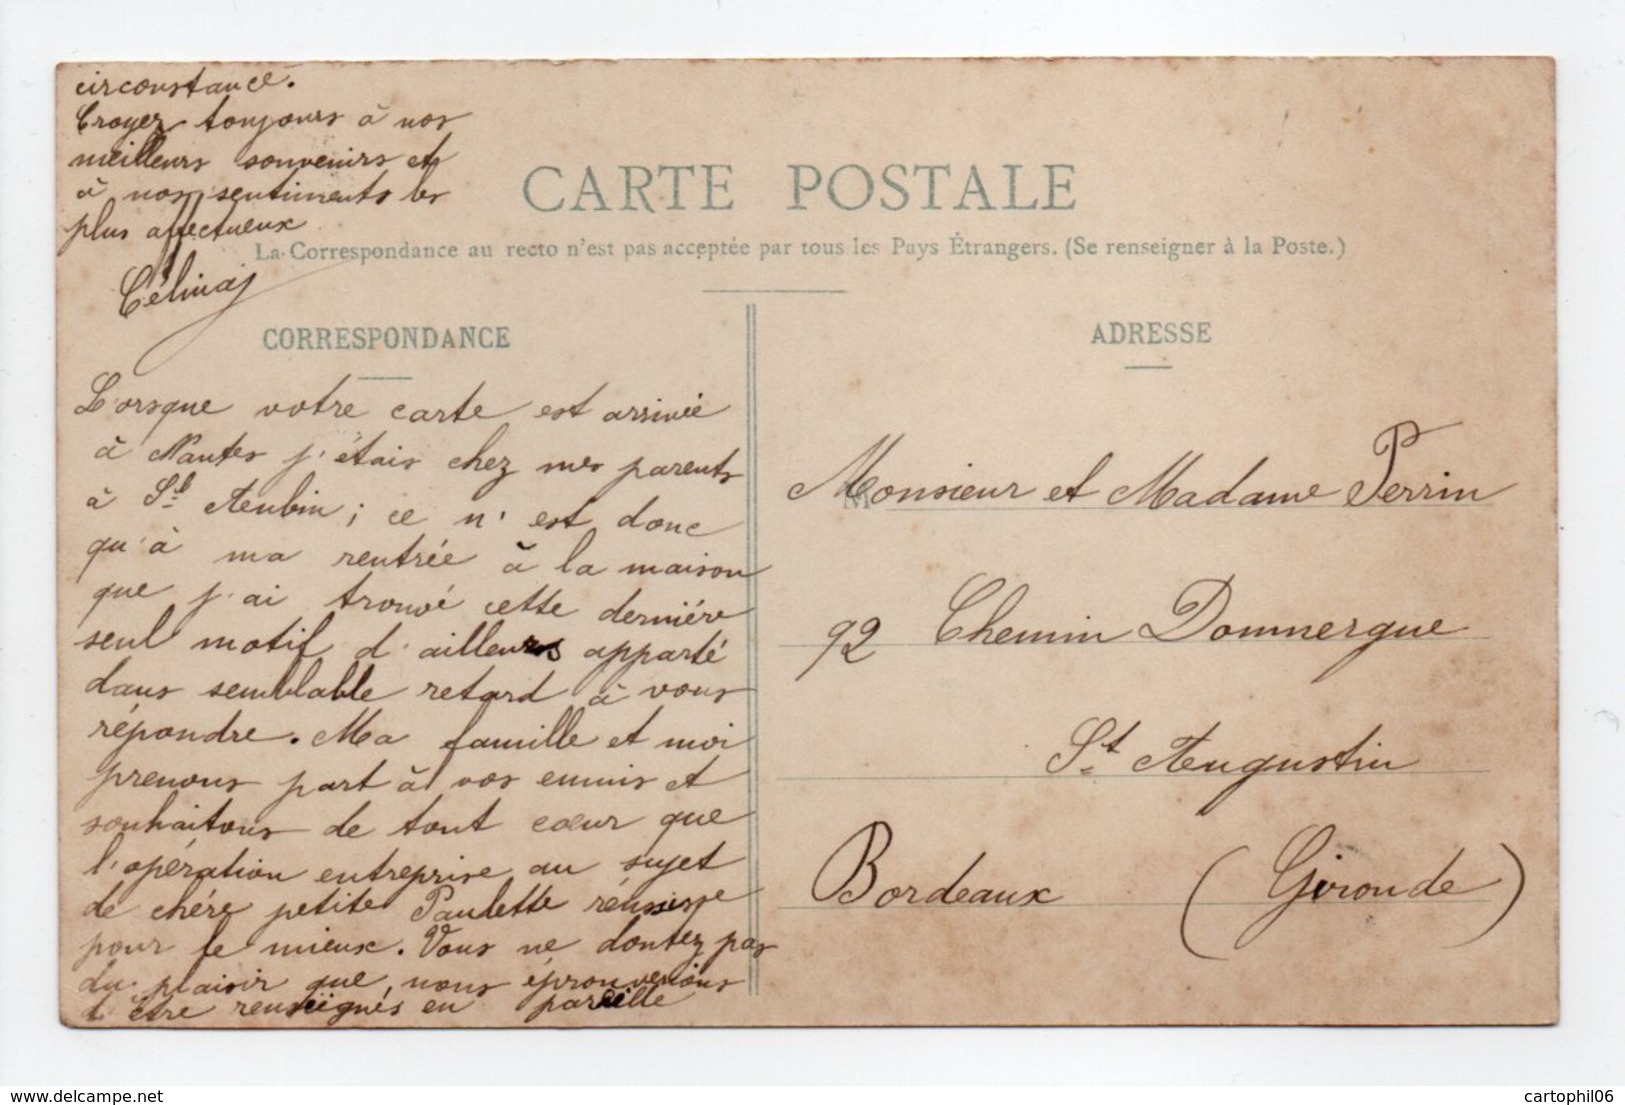 circonstance.
Croyez toujours à nos
meilleurs souvenirs et
à nos sentiments les
plus affectueux
Célina
CARTE POSTALE
La Correspondance au recto n'est pas acceptée par tous les Pays Étrangers. (Se renseigner à la Poste.)
CORRESPONDANCE
Lorsque votre carte est arrivée
à Nantes j'étais chez mes parents
à St Aubin; ce n'est donc
qu'à ma rentrée à la maison
que j'ai trouvé cette dernière
seul motif d'ailleurs apporté
dans semblable retard à vous
répondre. Ma famille et moi
prenons part à vos ennuis et
souhaitons de tout cœur que
l'opération entreprise au sujet
de chère petite Paulette réussisse
pour le mieux. Vous ne doutez pas
du plaisir que nous éprouverions
d'être renseignés en pareille
ADRESSE
Monsieur et Madame Perrin
92 Chemin Dommergue
St Augustin
Bordeaux (Gironde)
delcampe.net
cartophil06